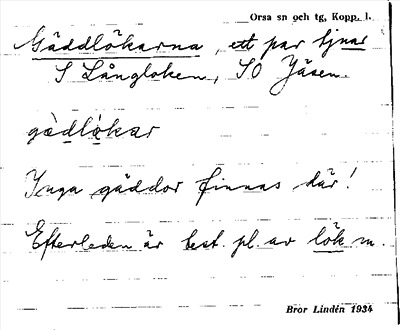 Orsa sn och tg, Kopp. l.
Gäddlökarna, ett par tjnar
S Långloken, SO Jäsen.
gädlökar
Inga gäddor finnas där!
Efterleden är best. pl. av lök m.
Bror Lindén 1934